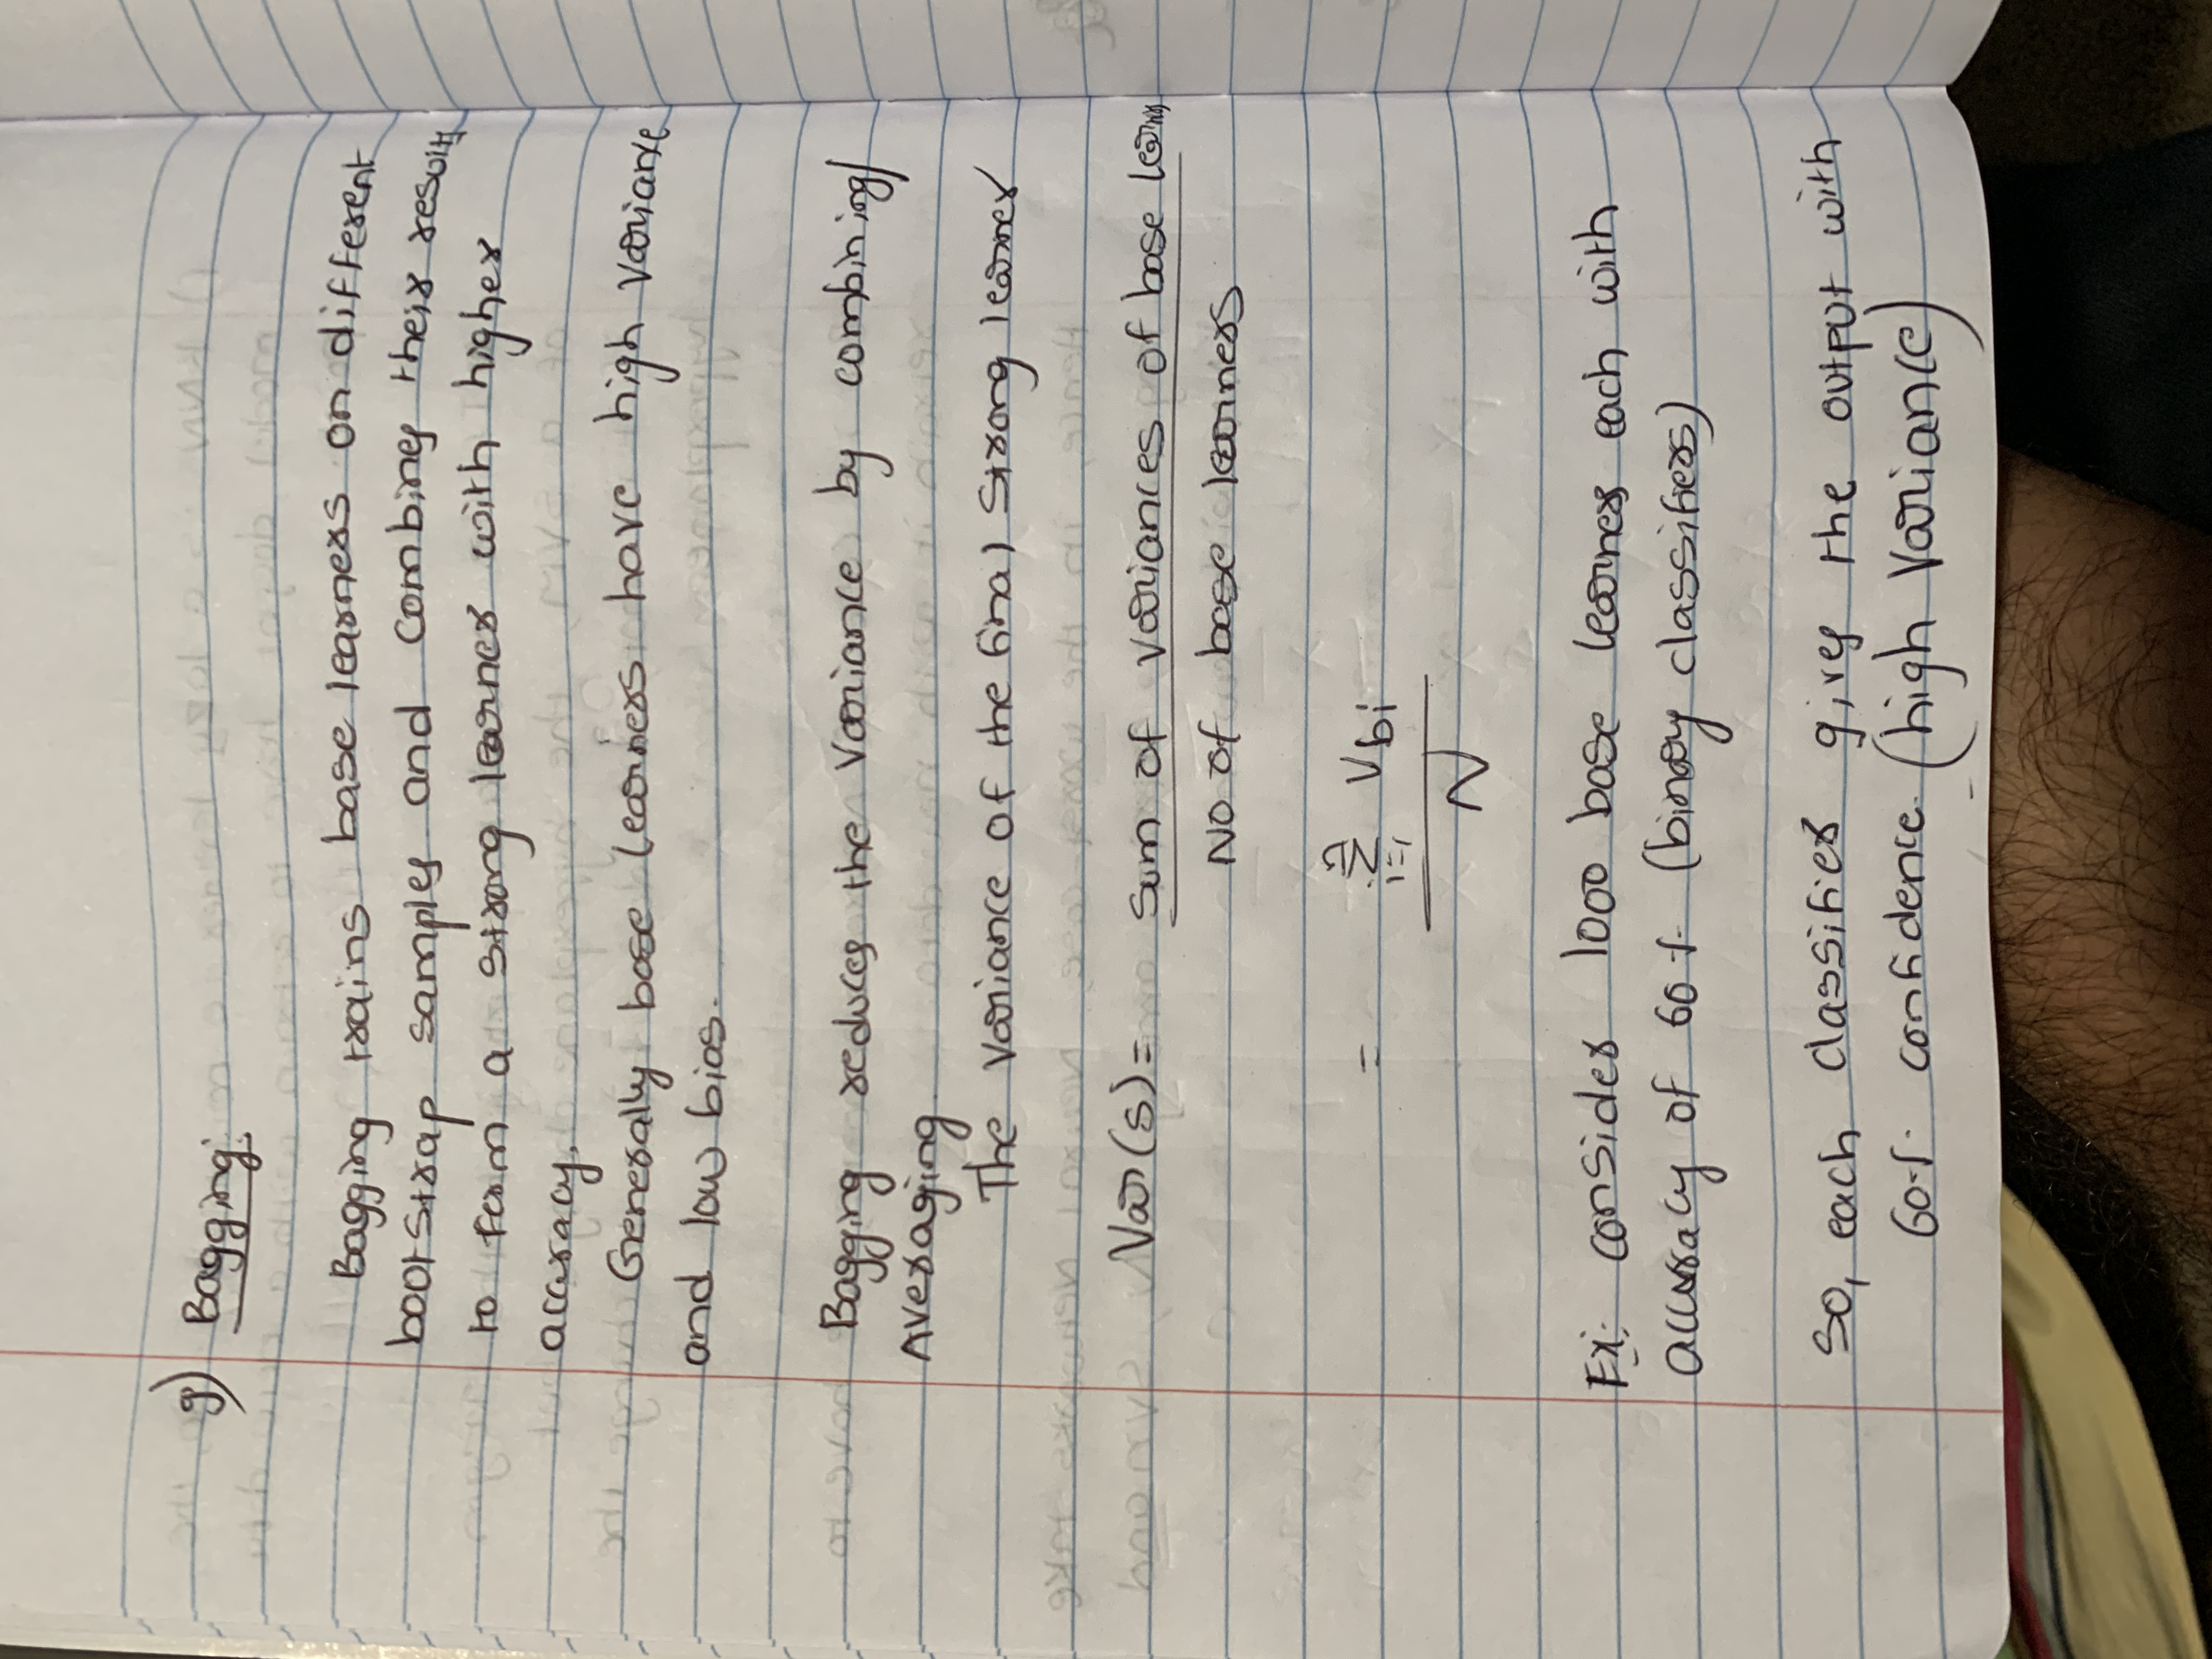 g) Bagging:
Bagging trains base learners on different
bootstrap samples and combines their results
to form a strong learner with higher
accuracy.
Generally base learners have high variance
and low bias.
Bagging reduces the variance by combining/
Averaging
The variance of the final strong learner
Var(s) = sum of variances of base learners
No of base learners
= Σ i=1 Vbi
N
Ex: consider 1000 base learners each with
accuracy of 60% (binary classifiers)
So, each classifier gives the output with
60% confidence. (high variance)